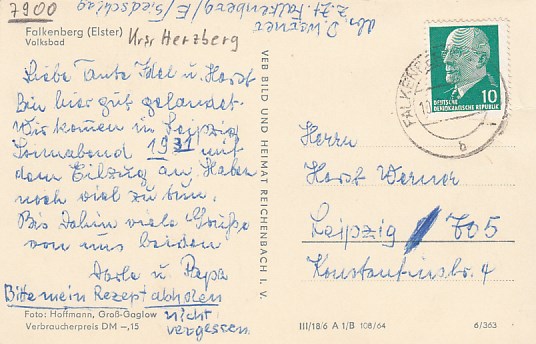 7900
Falkenberg (Elster)
Volksbad
Krs Herzberg
z. Zt. Falkenberg/E
Liebe Tante Idel u. Horst
Bin hier gut gelandet.
Wir kommen in Leipzig
Sonnabend 1931 mit
dem Eilzug an. Haben
noch viel zu tun.
Bis Dahin viele Grüße
von uns beiden
u. Papa
Bitte mein Rezept abholen
nicht
vergessen
Foto: Hoffmann, Groß-Gaglow
Verbraucherpreis DM –,15
VEB BILD UND HEIMAT REICHENBACH I. V.
DEUTSCHE
DEMOKRATISCHE REPUBLIK
10
Herrn
Horst Werner
Leipzig 705
Konstantinstr. 4
III/18/6 A 1/B 108/64
6/363